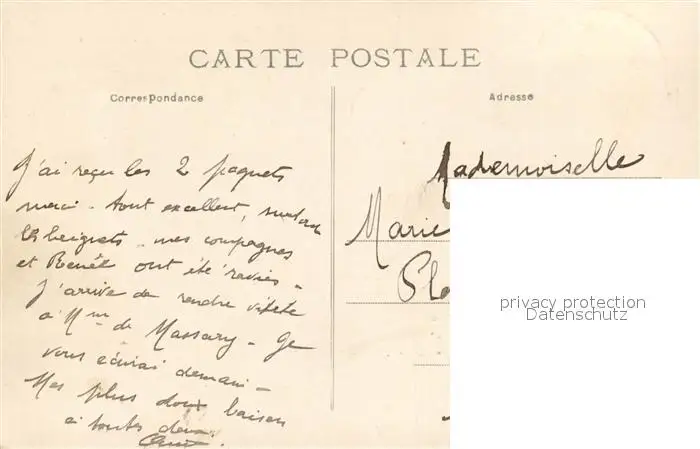 CARTE POSTALE
Correspondance
Adresse
J'ai reçu les 2 paquets
merci - tout excellent, surtout
les beignets - mes compagnes
et Renée ont été ravies -
J'arrive de rendre visite
à Mme de Massary - Je
vous écrirai demain -
Mes plus doux baisers
à toutes deux.
Mademoiselle
Marie
Pla
privacy protection
Datenschutz